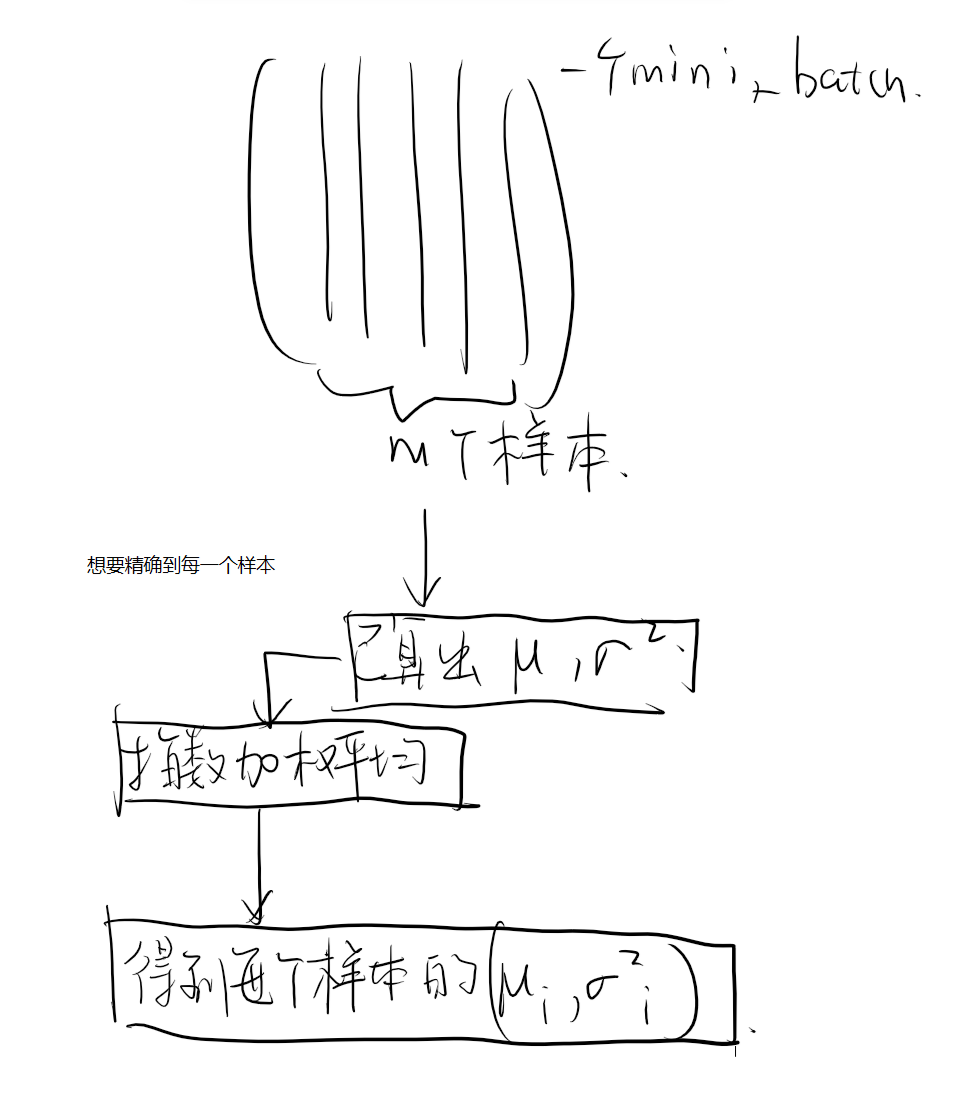 一个mini-batch.
m个样本.
想要精确到每一个样本
已算出 μ,σ².
指数加权平均
得到每个样本的(μi,σ²i).